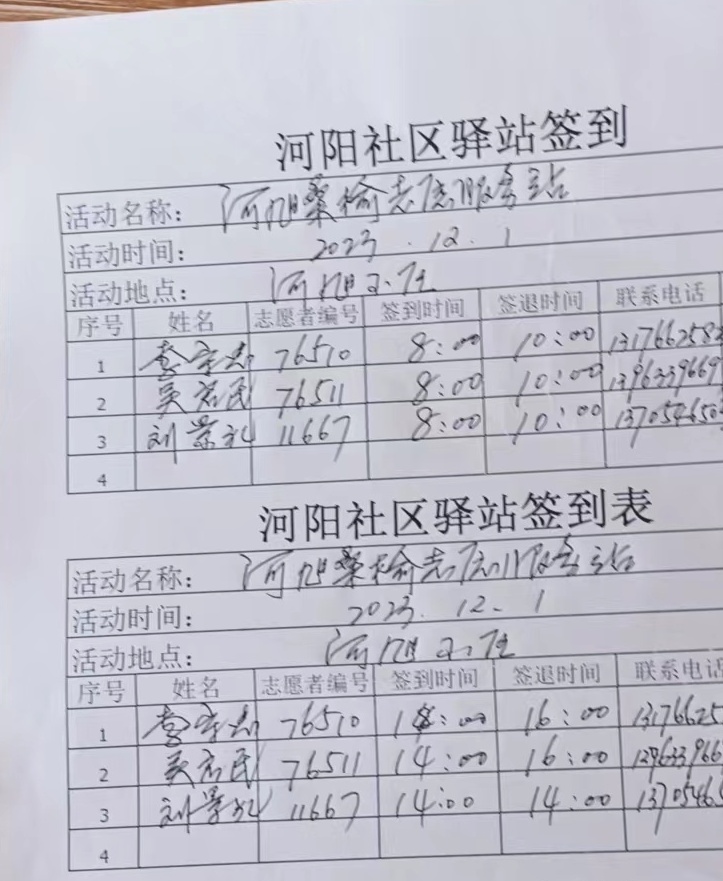 河阳社区驿站签到
活动名称：河旭桑榆志愿服务站
活动时间：2023.12.1
活动地点：河旭小区
序号 姓名 志愿者编号 签到时间 签退时间 联系电话
1 76510 8:00 10:00 131766258
2 吴启民 76511 8:00 10:00 1396339669
3 刘景礼 11667 8:00 10:00 1370546503
4
河阳社区驿站签到表
活动名称：河旭桑榆志愿服务站
活动时间：2023.12.1
活动地点：河旭小区
序号 姓名 志愿者编号 签到时间 签退时间 联系电话
1 76510 14:00 16:00 13176625
2 吴启民 76511 14:00 16:00 129633966
3 刘景礼 11667 14:00 14:00 1370546
4